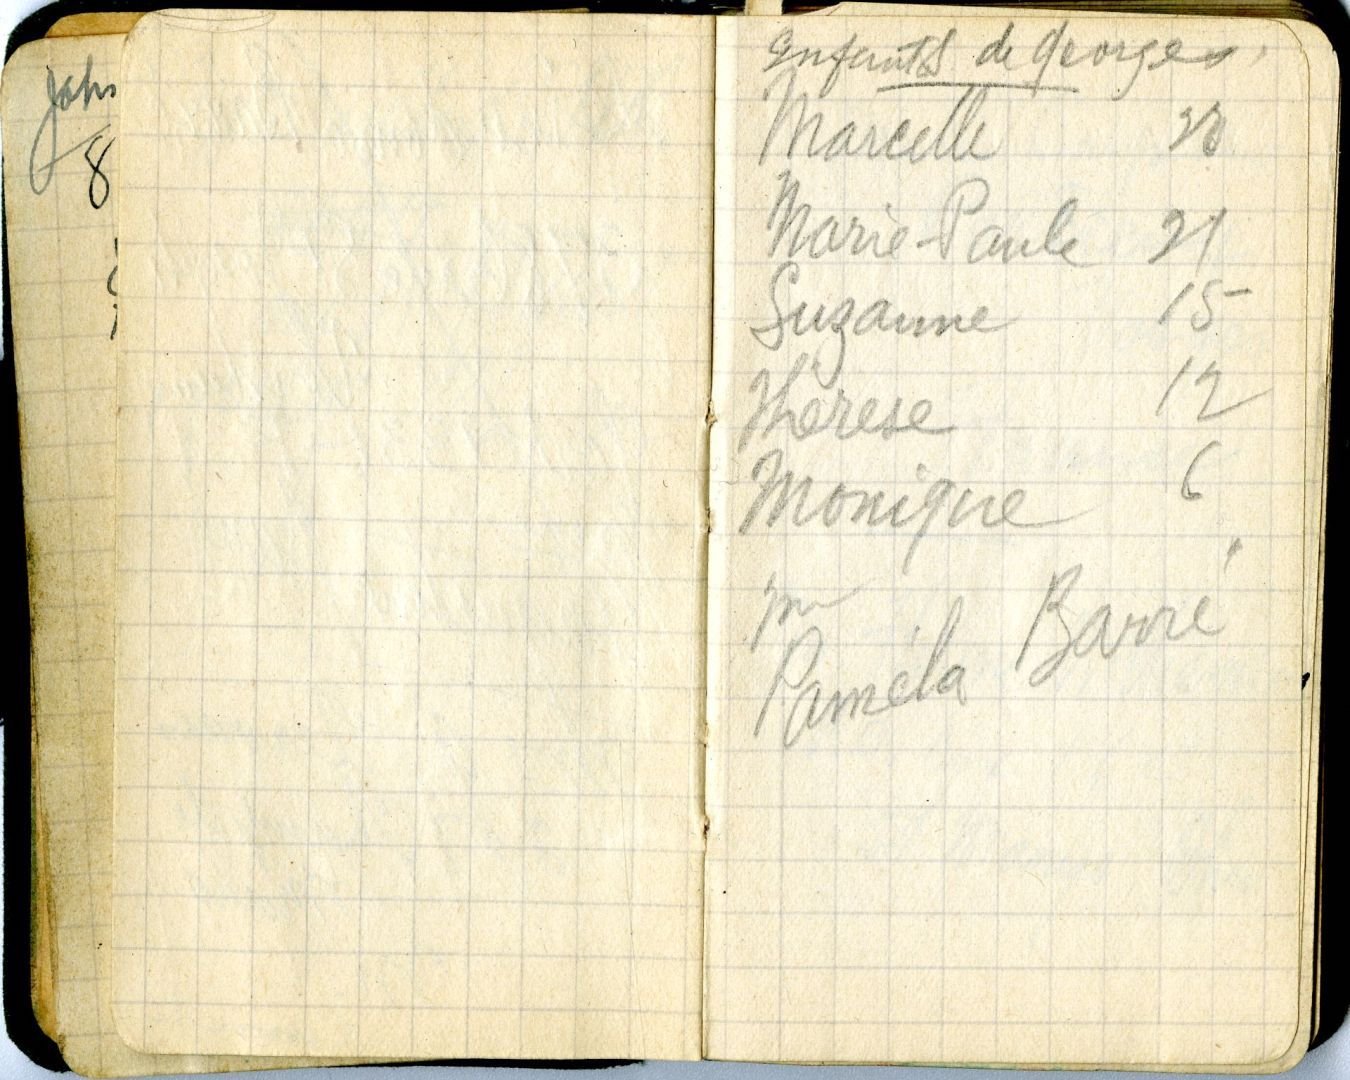 John
8
Enfants de Georges
Marcelle 23
Marie-Paule 21
Suzanne 15
Thérese 12
Monique 6
Mme
Paméla Barré